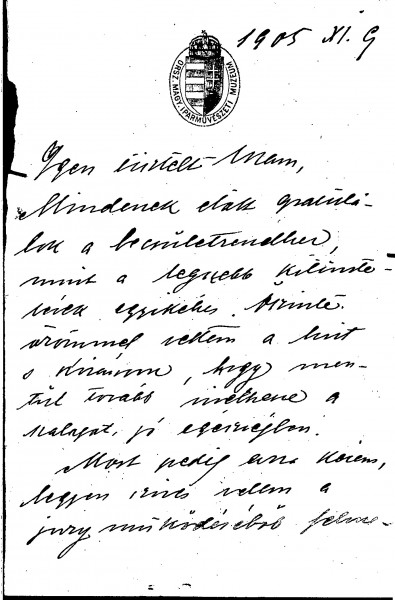 1905 XI. 9
ORSZ. MAGY. IPARMŰVÉSZETI MÚZEUM
Igen tisztelt Uram,
Mindenek előtt gratulá-
lok a becsületrendhez,
mint a legszebb kitünte-
tések egyikéhez. Őszinte
örömmel vettem a hírt
s kívánom, hogy men-
tül tovább viselhesse a
szalagot, jó egészségben.
Most pedig arra kérem,
legyen szíves velem a
jury működéséből